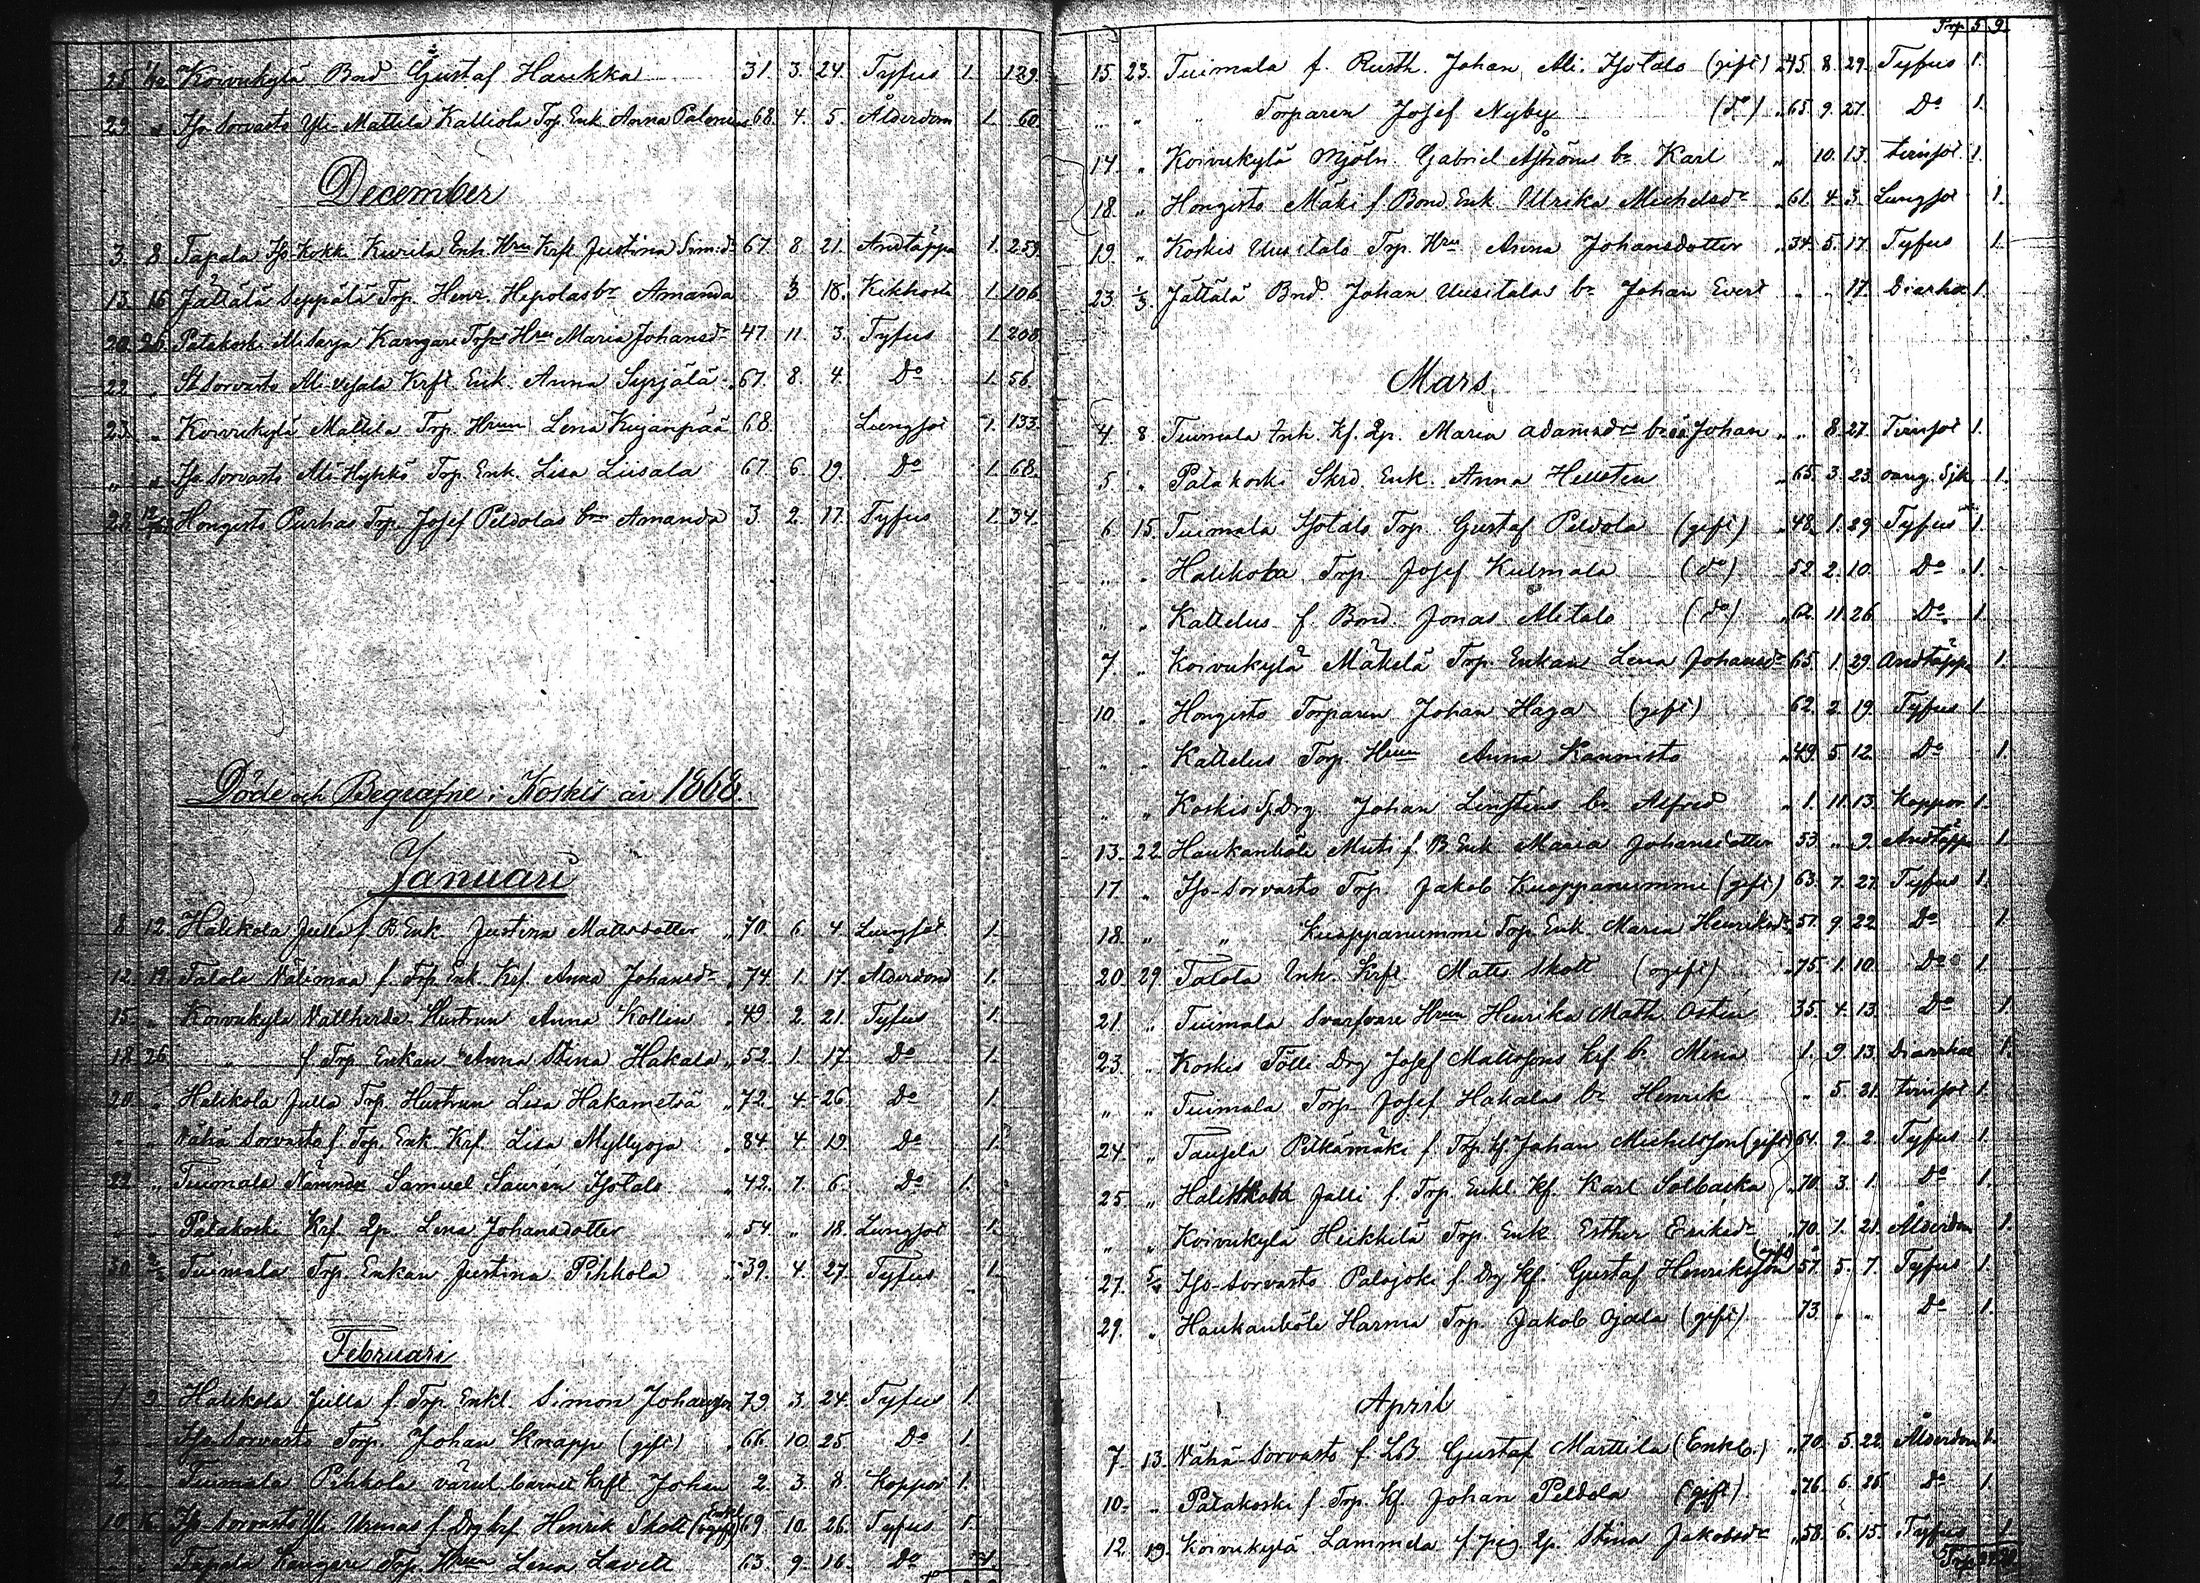 25. 1/12 Koivukylä Bnd Gustaf Haukka 31. 3. 24. Tyfus 1. 129.
29. " Iso-Sorvasto Yli-Mattila Kalliola Trp. Enk. Anna Palonius 68. 4. 5. Ålderdom 1. 60.
December
3. 8 Tapala Kurila Enk. Hru Krft Justina Simsdr 67. 8. 21. Andtäppa 1. 259.
13. 15 Jättälä Seppälä Trp. Henr. Hepolas br Amanda 3 18. Kikhosta 1. 106.
20. 26. Patakoski Kangare Trps Hru Maria Johansdr 47. 11. 3. Tyfus 1. 208.
22. " Krft Enk. Anna Syrjälä 67. 8. 4. Do 1. 56.
23. " Koivukylä Mattila Trp. Hrun Lena Kujanpää 68 Lungsot 1. 133.
" " Iso Sorvasto Ali-Hyhkö Trp. Enk. Lisa Liisala 67 6. 19. Do 1. 68.
28. Hongisto Purhas Trp. Josef Peldolas br Amanda 3. 2. 17. Tyfus 1. 34.
Döde och Begrafne i Koskis år 1868.
Januari
8 12. Halikola Julla f. B. Enk. Justina Mattsdotter " 70. 6. 4. Lungsot 1.
12. 19. Talola Välimaa f. Trp Enk. Krf. Anna Johansdr " 74. 1. 17. Ålderdom 1.
15. " Koivukylä Vallherde Hustrun Anna Kollin " 49 2. 21. Tyfus 1.
18. 26 " f. Trp Enkan Anna Stina Hakala " 52. 1. 17. Do 1.
20. " Halikola Julla Trp. Hustrun Lisa Hakametsä " 72. 4. 26. Do 1.
" " Vähä Sorvasto f. Trp. Enk. Krf. Lisa Myllyoja " 84. 4. 12. Do 1.
22. " Tuimala Nämndm Samuel Saurén Isotalo " 42. 7. 6. Do 1.
" " Patakoski Krf. Qp. Lena Johansdotter " 54. " 18. Lungsot 1.
30. 2/2 Tuimala Trp. Enkan Justina Pihkola " 39. 4. 27. Tyfus 1.
Februari
1. 9. Halikola Julla f. Trp. Enkl. Simon Johansson 79. 3. 24. Tyfus 1.
" " Iso-Sorvasto Torp. Johan Knapp (gift) " 66. 10. 25. Do 1.
2. " Tuimala Pihkola Krft Johan 2. 3. 8. Koppor 1.
10. 16. Iso-Sorvasto Yli Uvenas f. Drg krf. Henrik Skott 69. 10. 26. Tyfus 1.
" " Tapala Kangare Trp. Hrun Lena Lavett 63. 9. 16. Do 1.
Trp 5 9.
15. 23. Tuimala f. Rusth. Johan Ali-Isotalo (gift) " 45. 8. 29. Tyfus 1.
" " " Torparen Josef Nyby (do) " 65. 9. 27. Do 1.
14. " Koivukylä Mjöln. Gabriel Åströms br Karl " 10. 13. 1.
18. " Hongisto Mäki f. Bond. Enk. Ulrika Michelsdr " 61. 4. 3. Lungsot 1.
19. " Koskis Uusitalo Trp. Hru Anna Johansdotter " 34. 5. 17. Tyfus 1.
23. 1/3. Jättälä Bnd. Johan Uusitalos br Johan Evert " " 17. Diarhea 1.
Mars.
4 8 Tuimala Inh. Kf. Qp. Maria Adamsdr Johan " " 8. 27. 1.
5. " Patakoski Skrd. Enk. Anna Hellsten " 65. 3. 23. 1.
6 15. Tuimala Isotalo Trp. Gustaf Peldola (gift) " 48. 1. 29. Tyfus 1.
" " Halikola Trp. Josef Kulmala (do) 52. 2. 10. Do 1.
" " Kattelus f. Bond. Jonas Alitalo (do) " 62. 11. 26. Do 1.
7. " Koivukylä Mäkelä Trp. Enkan Lena Johansdr 65. 1. 29. Andtäppa 1.
10. " Hongisto Torparen Johan Haga (gift) 62. 2. 19. Tyfus 1.
" " Kattelus Torp. Hrun Anna Kannisto " 49. 5 12. Do 1.
" " Koskis Drg Johan br Alfred " 1. 11. 13. Koppor 1.
13. 22. Haukanböle f. B. Enk. Maria Johansdotter 53. " 9. Andtäppa 1.
17. " Iso-Sorvasto Trp. Jakob Kuoppanummi (gift) 63. 7. 27. Tyfus 1.
18. " " Kuoppanummi Trp. Enk. Maria Henriksdr 57. 9. 22. Do 1.
20. 29. Talola Inh. Krft Matts Skott (ogift) " 75. 1. 10. Do 1.
21. " Tuimala Svarfvare Hrun Henrika Math. Osten 35. 4. 13. Do 1.
23. " Koskis Tölli Drg Josef Mattssons krf br Mina 1. 9. 13. Diarrhea 1.
" " Tuimala Torp Josef Hakalas br Henrik " 5. 21. 1.
24. " Pitkämäki f. Trp. kf. Johan Michelsson (gift) 64. 9. 2. Tyfus 1.
25. " Halikkola Jalli f. Trp. Enkl. kf. Karl Solbacka " 70. 3. 1. Do 1.
" " Koivukylä Heikkilä Trp. Enk. Esther Eriksdr " 70. 1. 21. Ålderdom 1.
27. 5/4 Iso-Sorvasto Palojoki f. Drg kf. Gustaf Henriksson (gift) 57. 5. 7. Tyfus 1.
29. " Haukanböle Harma Trp. Jakob Ojala (gift) 73. " " Do 1.
April
7. 13. Vähä-Sorvasto f. Gustaf Marttila (Enkl.) " 70. 5. 22. Ålderdom 1.
10. " Patakoski f. Trp. kf. Johan Peldola (gift) " 76. 6. 26. Do 1.
12. 19. Koivukylä Lammela f. pig. Qp. Stina Jakobsdr " 58. 6. 15. Tyfus 1.